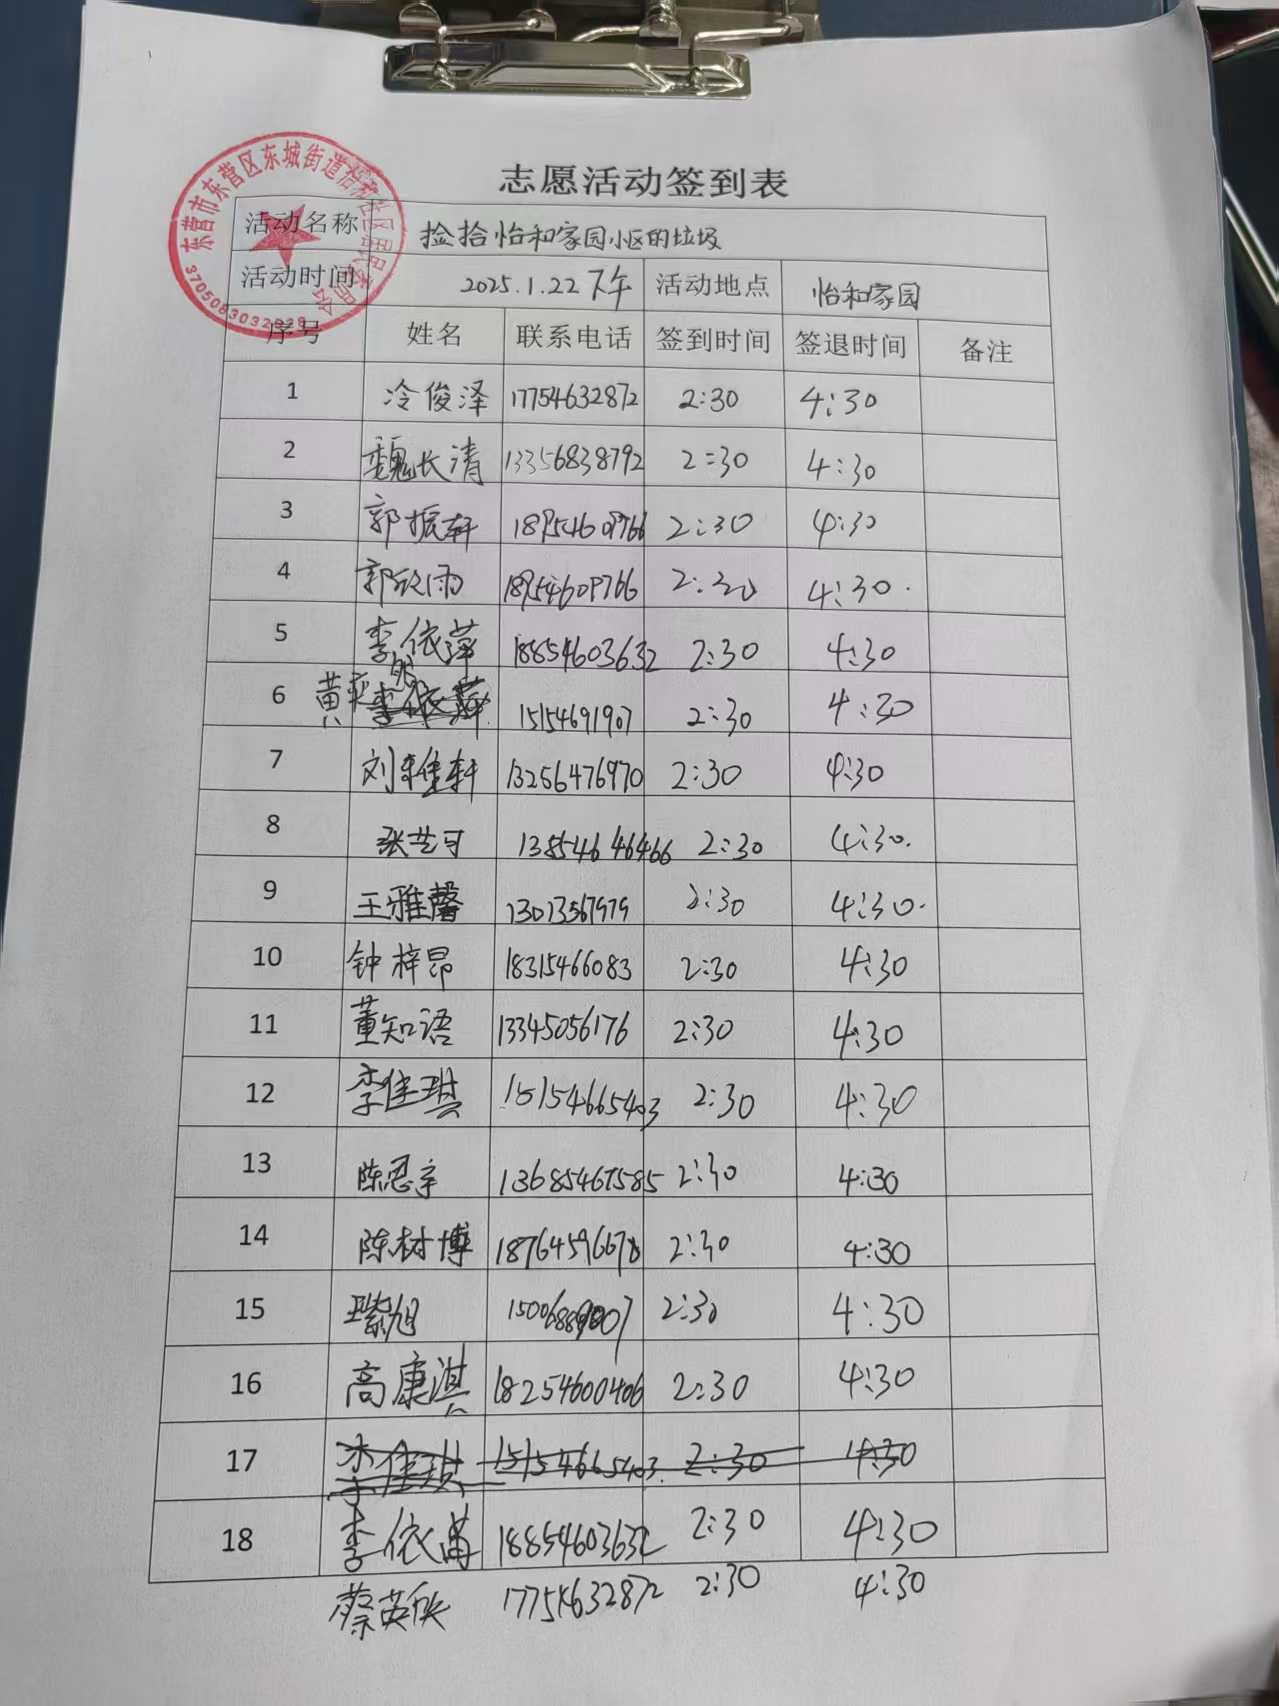 志愿活动签到表
东营市东营区东城街道
3705083032029
活动名称 捡拾怡和家园小区的垃圾
活动时间 2025.1.22下午 活动地点 怡和家园
序号 姓名 联系电话 签到时间 签退时间 备注
1 冷俊泽 17754632872 2:30 4:30
2 魏长清 13356838792 2:30 4:30
3 郭振轩 18954609766 2:30 4:30
4 郭欣雨 18954609766 2:30 4:30
5 李依萍 18854603632 2:30 4:30
6 黄奕 15154691907 2:30 4:30
7 刘雅轩 13256476970 2:30 4:30
8 张芷可 13854646466 2:30 4:30
9 王雅馨 13013567979 2:30 4:30
10 钟梓昂 18315466083 2:30 4:30
11 董知语 13345056176 2:30 4:30
12 李佳琪 15154665403 2:30 4:30
13 陈思宇 13685467585 2:30 4:30
14 陈树博 18764596678 2:30 4:30
15 旭 2:30 4:30
16 高康淇 18254600406 2:30 4:30
17 李佳琪 15154665403 2:30 4:30
18 李依苒 18854603632 2:30 4:30
蔡英欣 17754632872 2:30 4:30